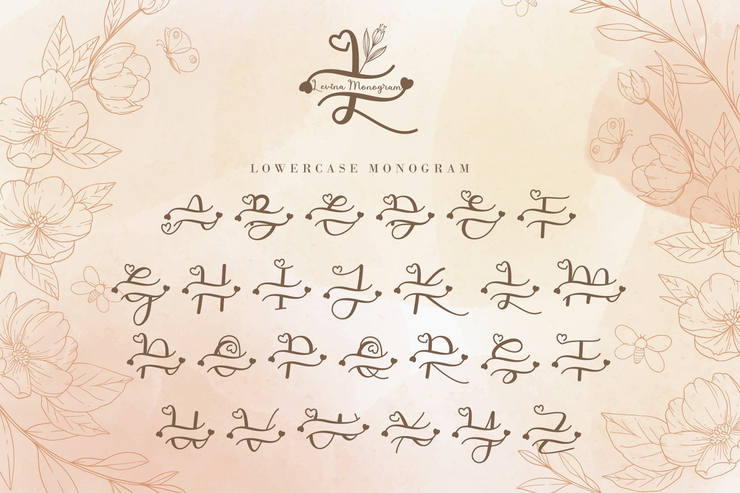 Levina Monogram
LOWERCASE MONOGRAM
A B C D E F
G H I J K L M
N O P Q R S T
U V W X Y Z